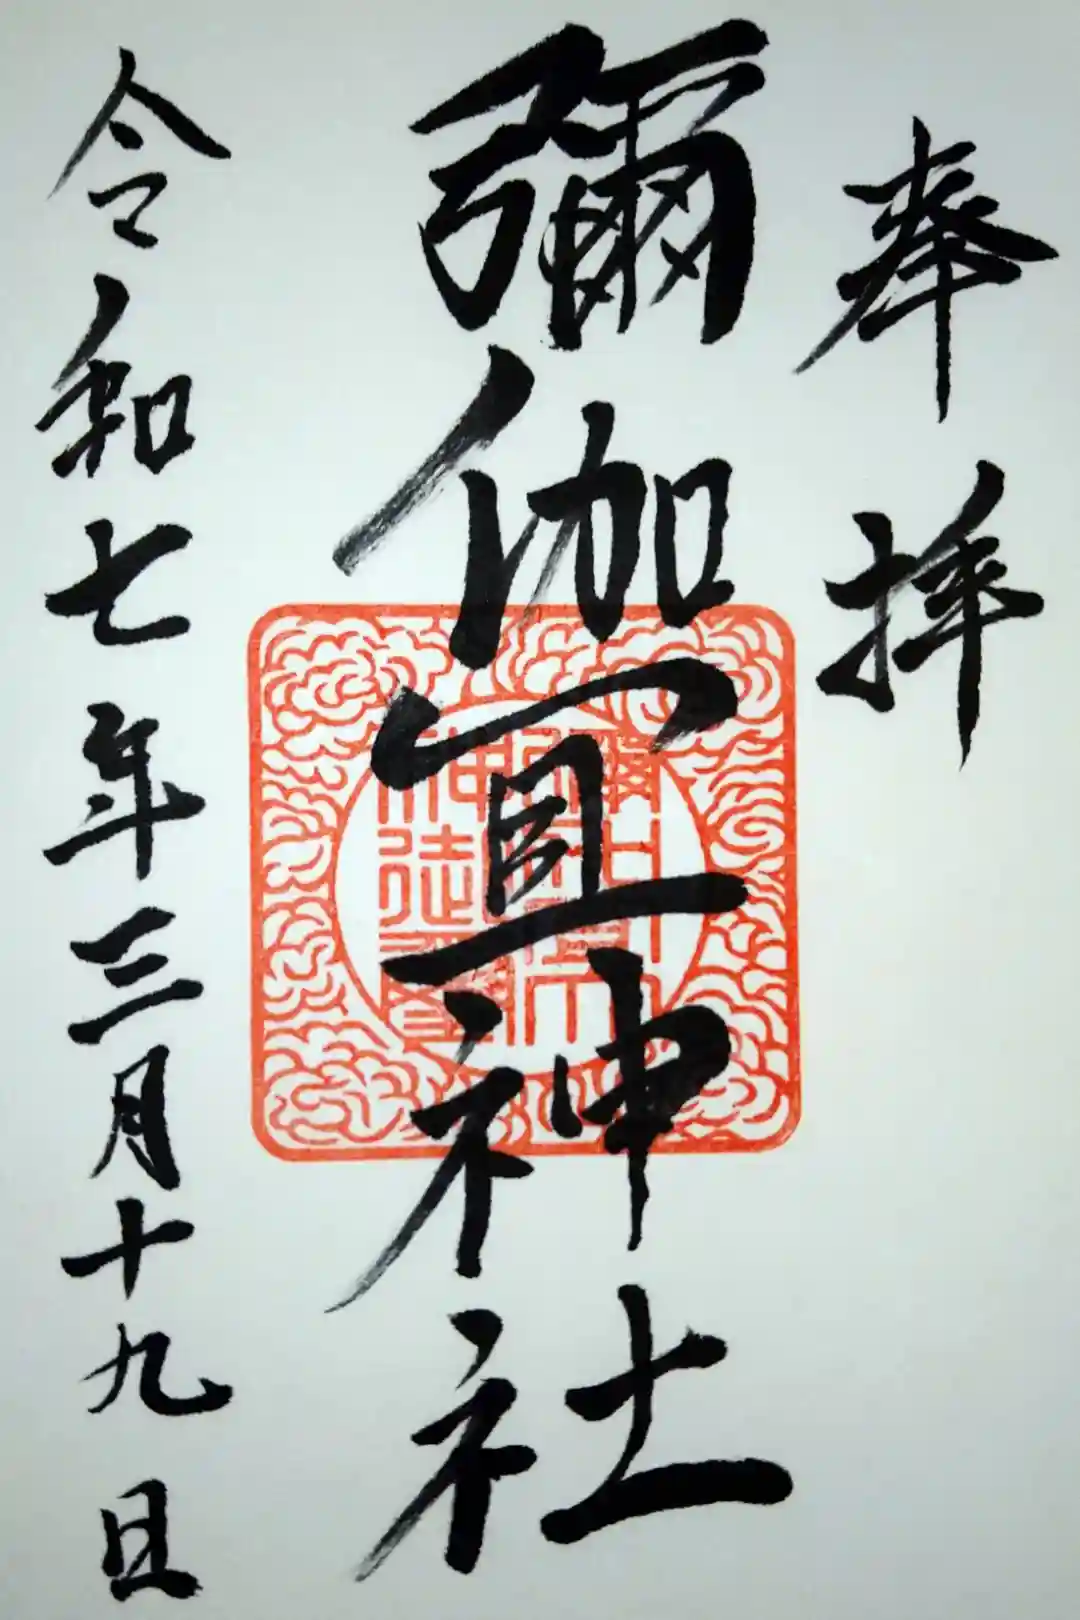 奉拝
彌伽宜神社
令和七年三月十九日